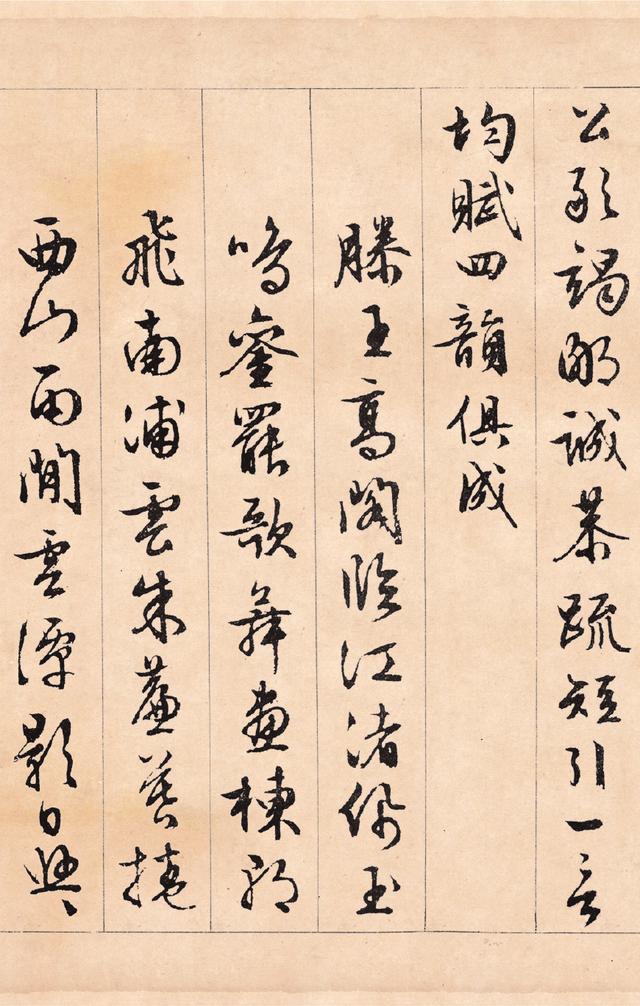 公敢竭鄙誠恭疏短引一言
均賦四韻俱成
滕王高閣臨江渚佩玉
鳴鑾罷歌舞畫棟朝
飛南浦雲朱簾暮捲
西山雨閒雲潭影日悠〻